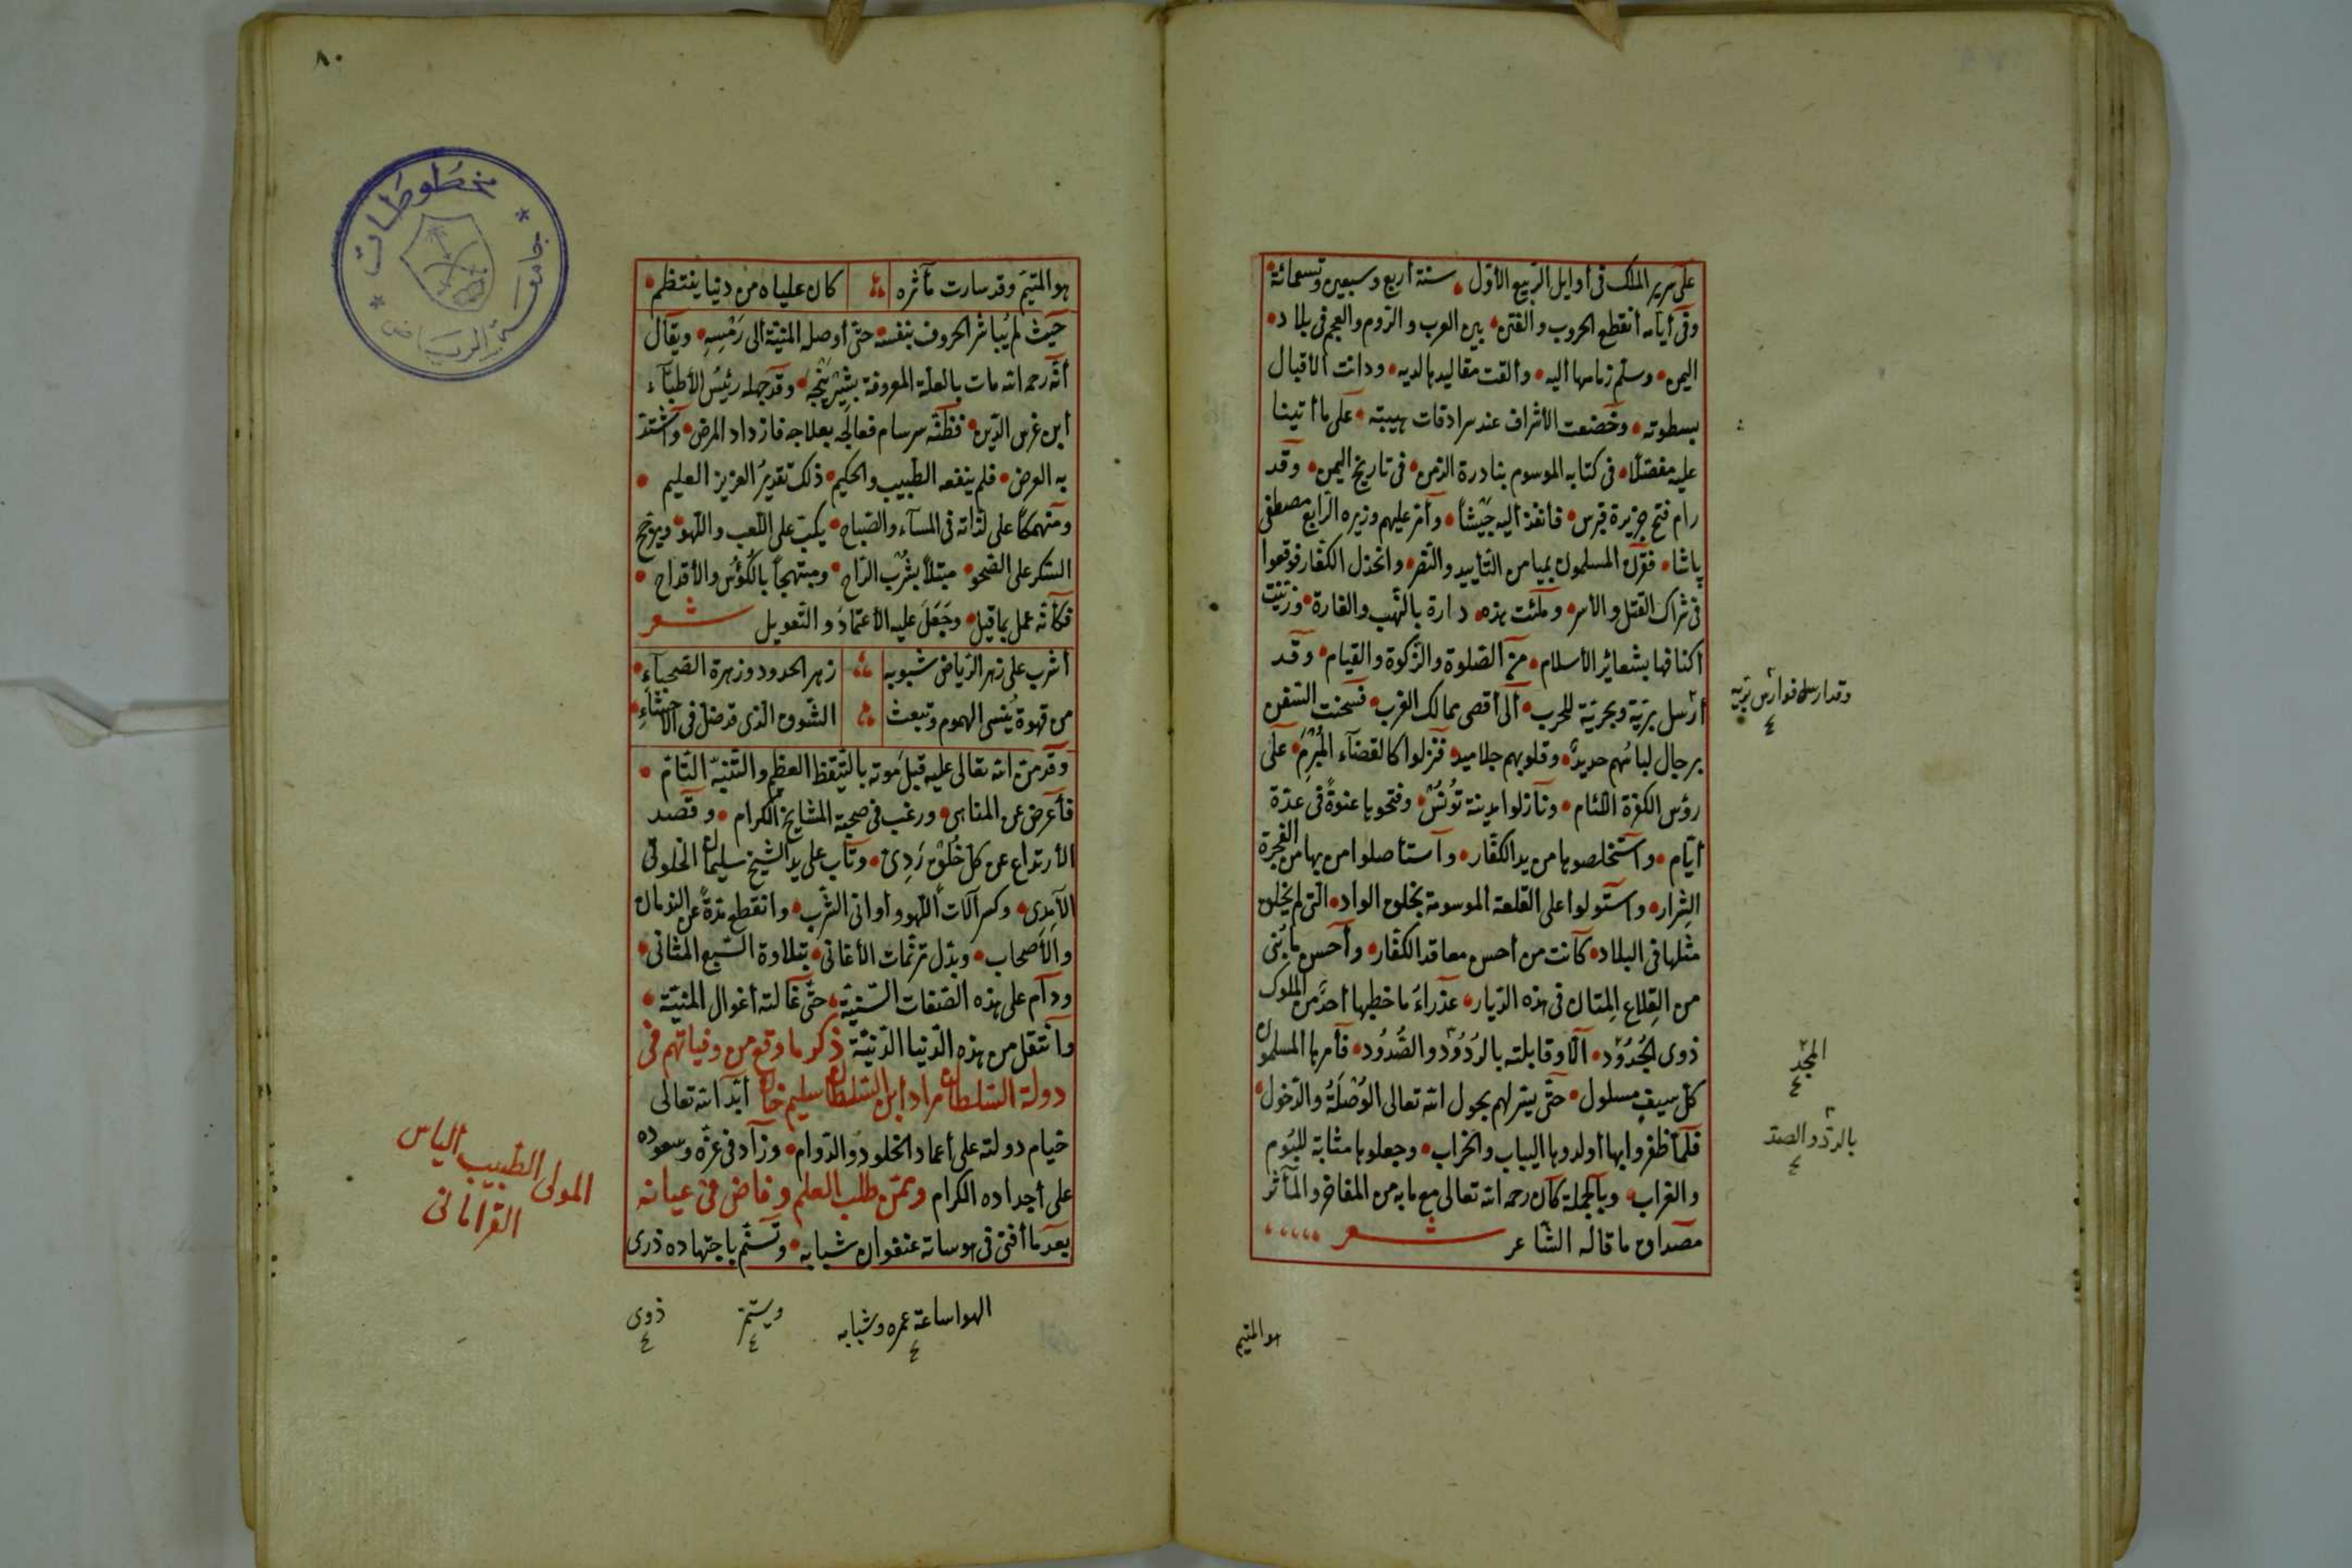 على سرير الملك فى أوايل الربيع الأول سنة أربع وسبعين وتسعمائة
وفى أيامه انقطع الحروب والفتن بين العرب والروم والعجم فى بلاد
اليمن وسلم زمامها اليه وألقت مقاليدها لديه ودانت الأقيال
بسطوته وخضعت الأشراف عند سرادقات هيبته على ما أتينا
عليه مفصلا فى كتابه الموسوم بنادرة الزمن فى تاريخ اليمن وقد
رام فتح جزيرة قبرس فأنفذ اليه جيشاً وأمر عليهم وزيره الرابع مصطفى
پاشا فقرن المسلمون بميامن التأييد والنصر وانخذل الكفار فوقعوا
فى شراك القتل والأسر وملئت هذه دارة بالنهب والغارة وزينت
اكنافها بشعائر الأسلام من الصلوة والزكوة والقيام وقد
أرسل برية وبحرية للحرب الى أقصى ممالك الغرب فسحنت السفن
برجال لباسهم حديد وقلوبهم جلاميد فنزلوا كالقضاء المبرم على
رؤس الكفرة اللئام ونازلوا مدينة تونس وفتحوها عنوة فى عدة
أيام واستخلصوها من يد الكفار وآستأصلوا من بها من الفجرة
الشرار واستولوا على القلعة الموسومة بخلق الواد التى لم يخلق
مثلها فى البلاد كانت من أحسن معاقد الكفار وأحسن ما بنى
من القلاع المتان فى هذه الديار عذراء ما خطبها أحد من الملوك
ذوى الجدود الا وقابلته بالردود والصدود فأمرها المسلمون
كل سيف مسلول حتى يسر لهم بحول الله تعالى الوصلة والدخول
فلما ظفروا بها أولدوها اليباب والخراب وجعلوها مثابة للبوم
والغراب وبالجملة كان رحمه الله تعالى مع ما به من المفاخر والمآثر
مصداق ما قاله الشاعر شعر
وقد ارسل فوارس بريه
٤
المجد
٤
بالرد والصد
٤
هو المتيم
٨٠
مخطوطات
جامعة الرياض
هو المتيم وقد سارت مآثره كان علياه من دنيا ينتظم
حيث لم يباشر الحروف بنفسه حتى أوصله المنية الى رمسه ويقال
أنه رحمه الله مات بالعلة المعروفة بشيرينجه وقد جهله رئيس الأطباء
ابن غرس الدين فظنه سرسام فعالجه بعلاجه فازداد المرض وآشتد
به العرض فلم ينفعه الطبيب والحكيم ذلك تقدير العزيز العليم
ومنهمكا على لذاته فى المساء والصباح يكب على اللعب واللهو ويرجح
السكر على الصحو مبتلاً بشرب الراح ومبتهجاً بالكؤس والأقداح
فكأنه عمل بما قيل وجعل عليه الأعتماد والتعويل شعر
أشرب على زهر الرياض شبوبه زهر الخدود وزهرة الصهباء
من قهوة ينسى الهموم وتبعث الشوق الذى قد ضل فى الأحشاء
وقد من الله تعالى عليه قبل موته بالتيقظ العظم والتنبه التام
فأعرض عن المناهى ورغب فى صحبة المشايخ الكرام وقصد
الأرتداع عن كل خلق ردئ وتاب على يد الشيخ سليمان الخلوتى
الآمدى وكسر آلات اللهو وأوانى الشرب وانقطع مدة عن الندمان
والأصحاب وبدل ترنمات الأغانى بتلاوة السبع المثانى
ودام على هذه الصفات السنية حتى غالته أغوال المنية
وانتقل من هذه الدنيا الدنية ذكر ما وقع من وفياتهم فى
دولة السلطان مراد ابن السلطان سليم خان أبد الله تعالى
خيام دولته على أعماد الخلود والدوام وزاد فى عزه وسعوده
على أجداده الكرام وممن طلب العلم وخاض فى عيانه
بعد ما أفنى فى هوساته عنفوان شبابه وتسنم باجتهاده ذرى
المولى الطبيب الياس
القرامانى
الهواساعة عمره وشبابه
٤
ويسنم
٤
ذوى
٤